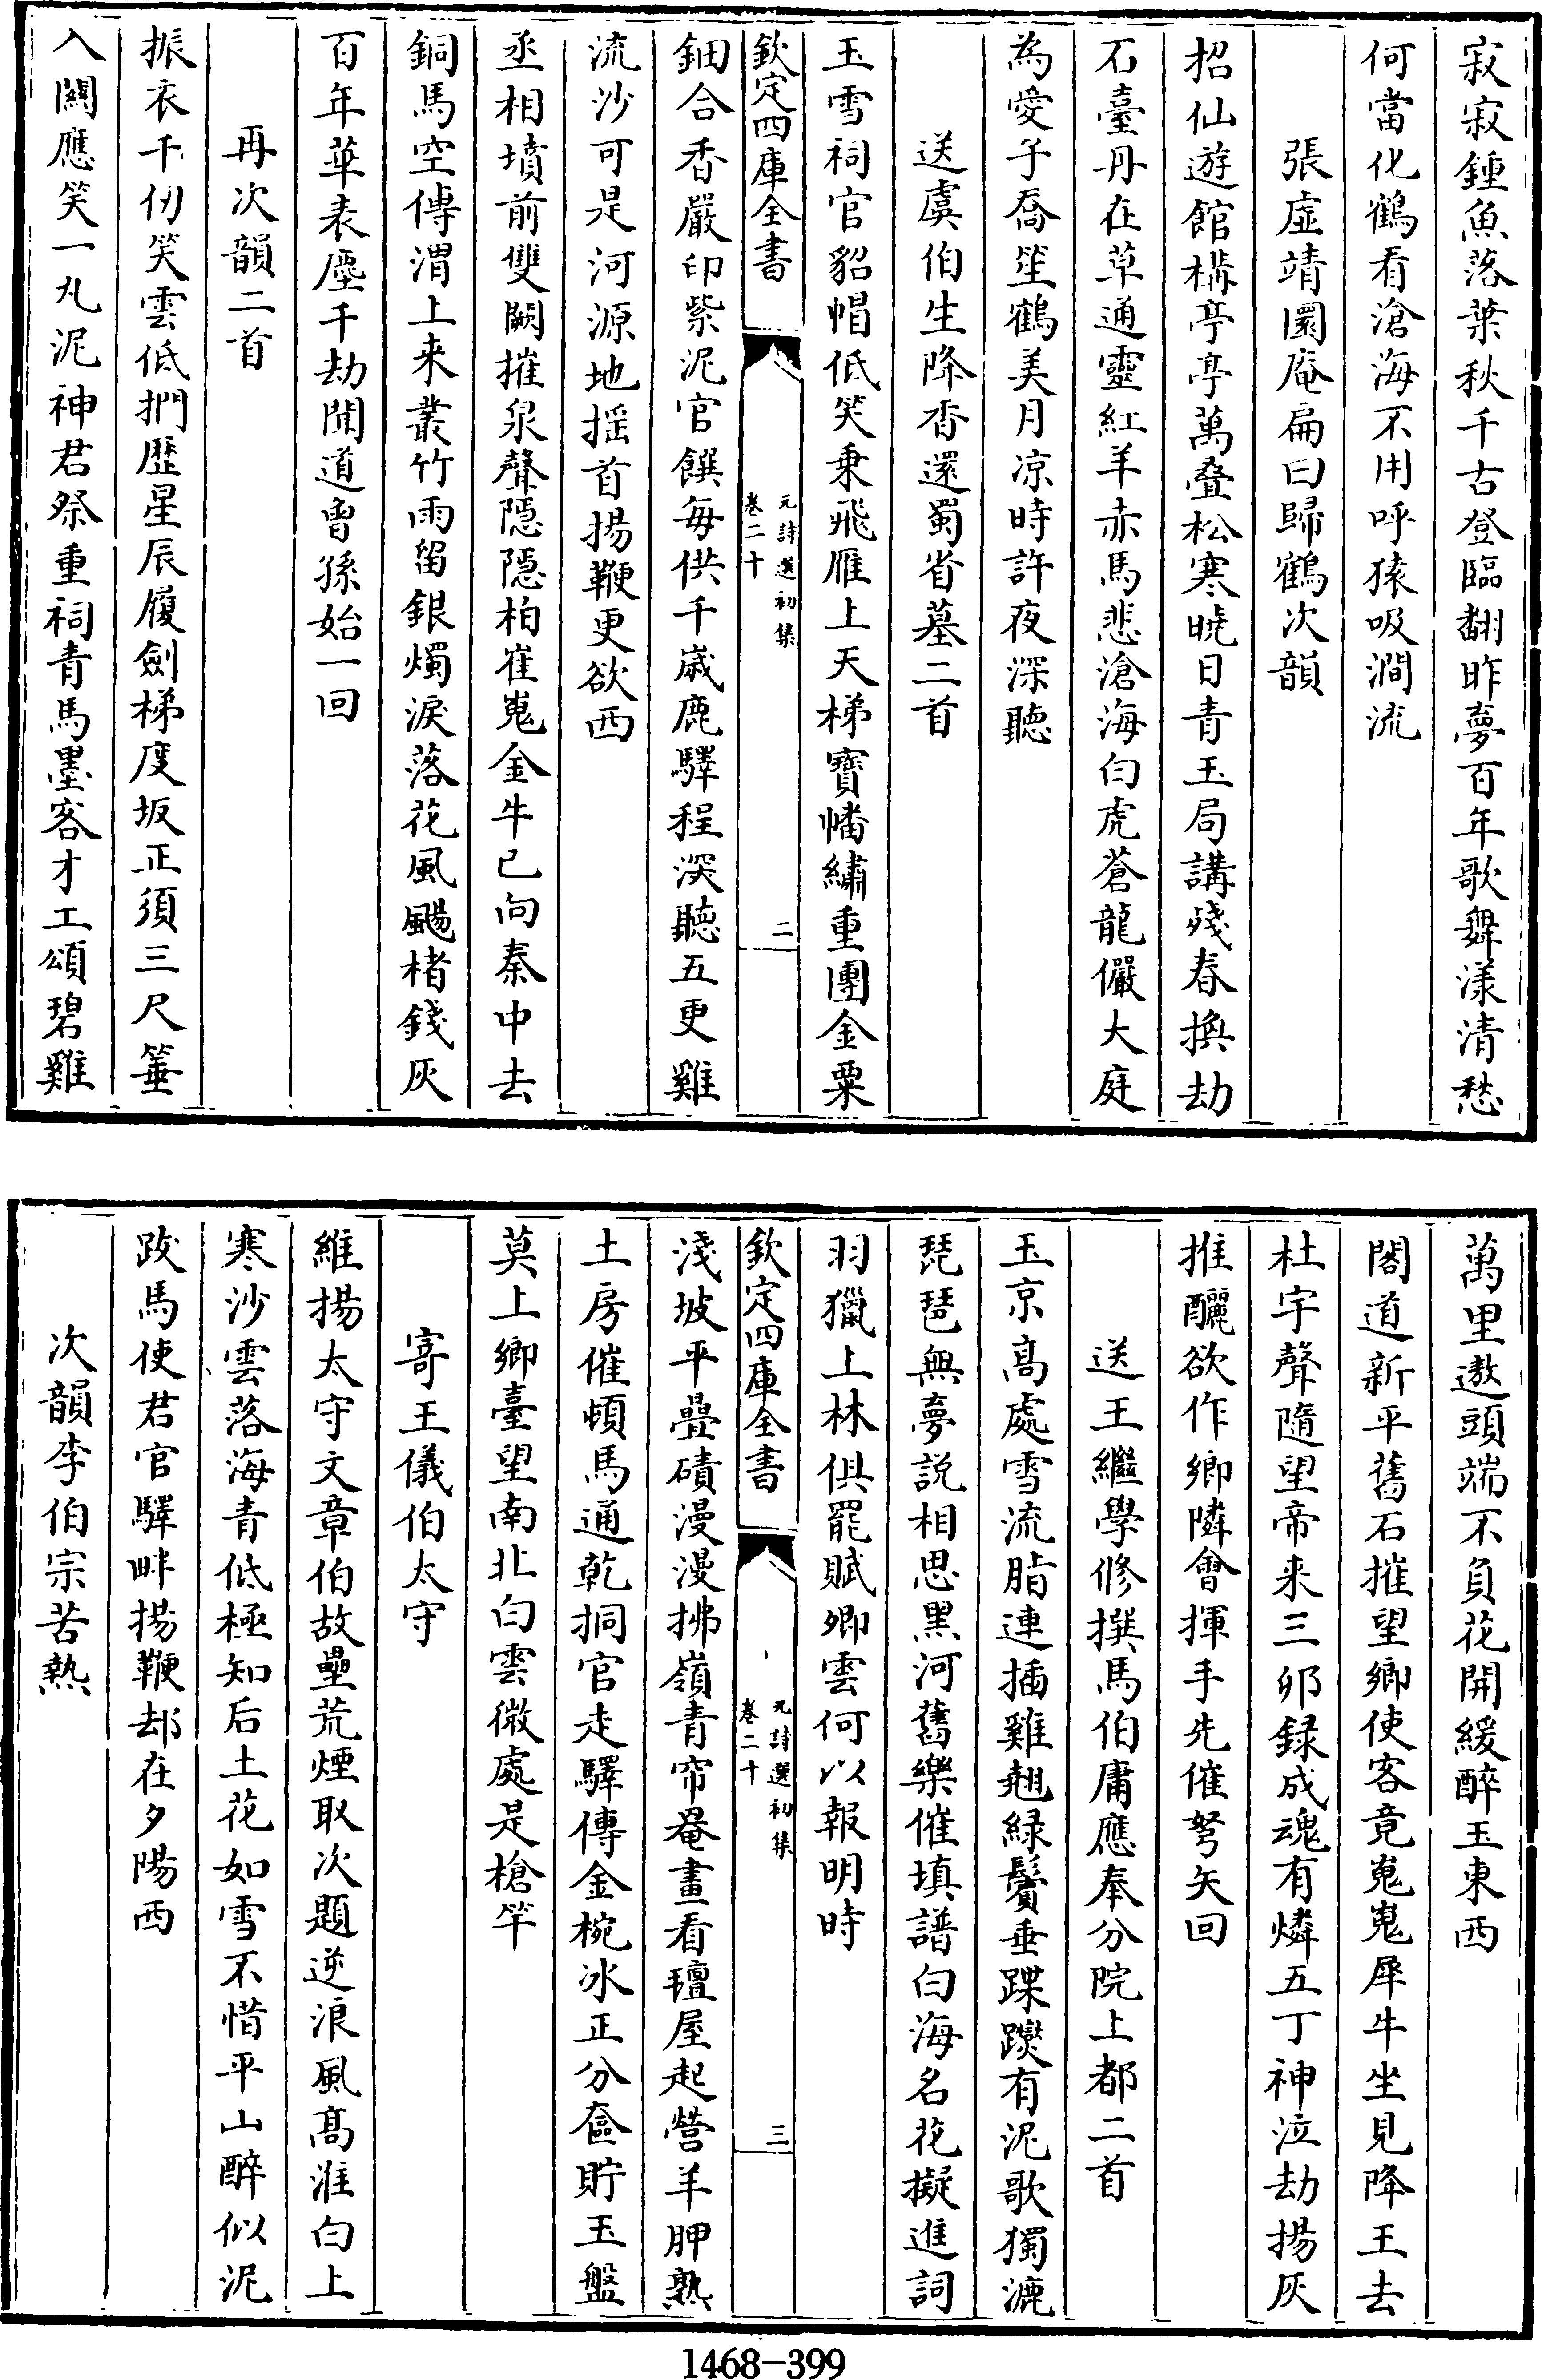 寂寂鍾魚落葉秋千古登臨翻昨夢百年歌舞漾清愁
何當化鶴看滄海不用呼猿吸澗流
張虛靖圜庵扁曰歸鶴次韻
招仙遊館構亭亭萬疊松寒曉日青玉局講殘春換劫
石臺丹在草通靈紅羊赤馬悲滄海白虎蒼龍儼大庭
為愛子喬笙鶴美月凉時許夜深聽
送虞伯生降香還蜀省墓二首
玉雪祠官貂帽低笑乘飛雁上天梯寶幡繡重團金粟
欽定四庫全書
元詩選初集
卷二十
二
鈿合香嚴印紫泥官饌每供千嵗鹿驛程深聽五更雞
流沙可是河源地摇首揚鞭更欲西
丞相墳前雙闕摧泉聲隱隱柏崔嵬金牛已向秦中去
銅馬空傳渭上来叢竹雨留銀燭淚落花風颺楮錢灰
百年華表塵千劫聞道曾孫始一回
再次韻二首
振衣千仞笑雲低捫歷星辰履劍梯度坂正須三尺箠
入關應笑一丸泥神君祭重祠青馬墨客才工頌碧雞
萬里遨頭端不負花開緩醉玉東西
閣道新平舊石摧望鄉使客竟嵬嵬犀牛坐見降王去
杜宇聲隨望帝来三卯録成魂有燐五丁神泣劫揚灰
推釃欲作鄉隣會揮手先催弩矢回
送王繼學修撰馬伯庸應奉分院上都二首
玉京高處雪流脂連插雞翹緑鬢垂蹀躞有泥歌獨漉
琵琶無夢説相思黑河舊樂催填譜白海名花擬進詞
羽獵上林俱罷賦卿雲何以報明時
欽定四庫全書
元詩選初集
卷二十
三
淺坡平疊磧漫漫拂嶺青帘罨畫看氊屋起營羊胛熟
土房催頓馬通乾挏官走驛傳金椀冰正分奩貯玉盤
莫上鄉臺望南北白雲微處是槍竿
寄王儀伯太守
維揚太守文章伯故壘荒煙取次題逆浪風髙淮白上
寒沙雲落海青低極知后土花如雪不惜平山醉似泥
跋馬使君官驛畔揚鞭却在夕陽西
次韻李伯宗苦熱
1468-399